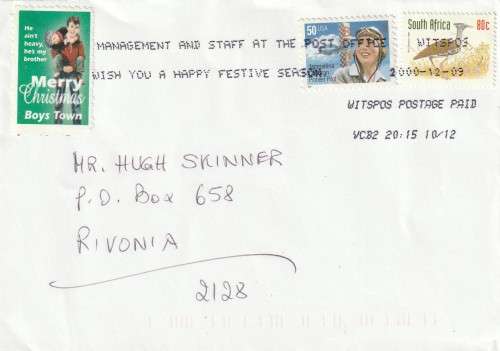 He
ain't
heavy,
he's my
brother
Merry
Christmas
Boys Town
50 USA
South Africa 80c
MANAGEMENT AND STAFF AT THE POST OFFICE WITSPOS
WISH YOU A HAPPY FESTIVE SEASON 2000-12-09
WITSPOS POSTAGE PAID
VCB2 20:15 10/12
MR. HUGH SKINNER
P.O. BOX 658
RIVONIA
2128